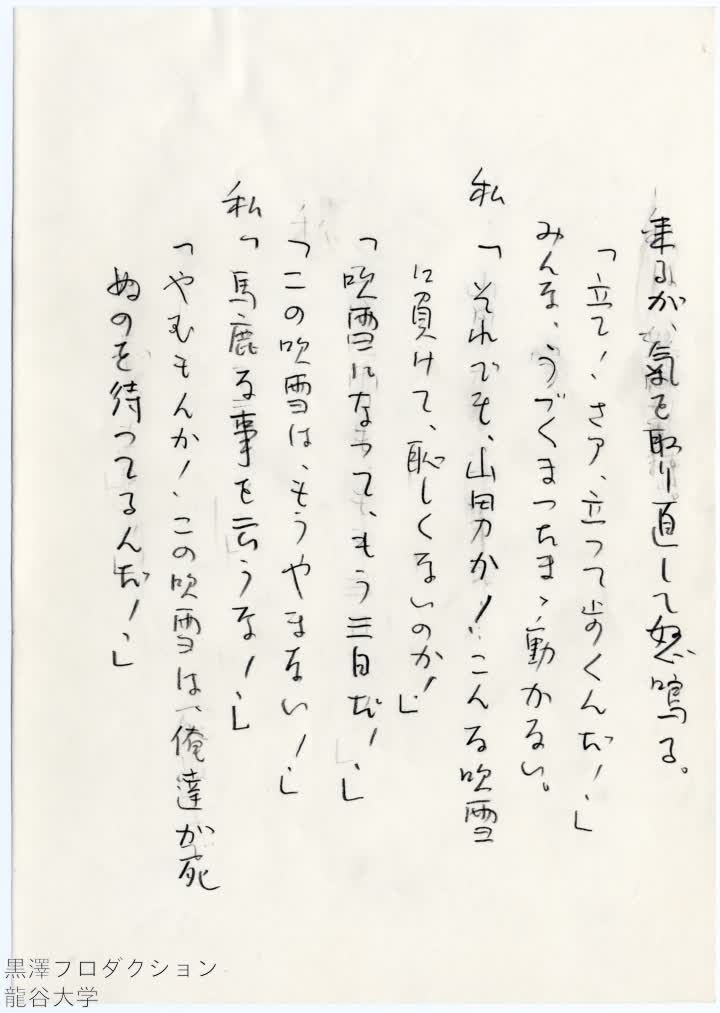 来るが、気を取り直して怒鳴る。
「立て！さア、立って歩くんだ！」
みんな、うづくまったまゝ動かない。
私「それでも、山男か！こんな吹雪
に負けて、恥しくないのか！」
「吹雪になって、もう三日だ！」
「この吹雪は、もうやまない！」
私「馬鹿な事を云うな！」
「やむもんか！この吹雪は、俺達が死
ぬのを待ってるんだ！」
黒澤プロダクション
龍谷大学